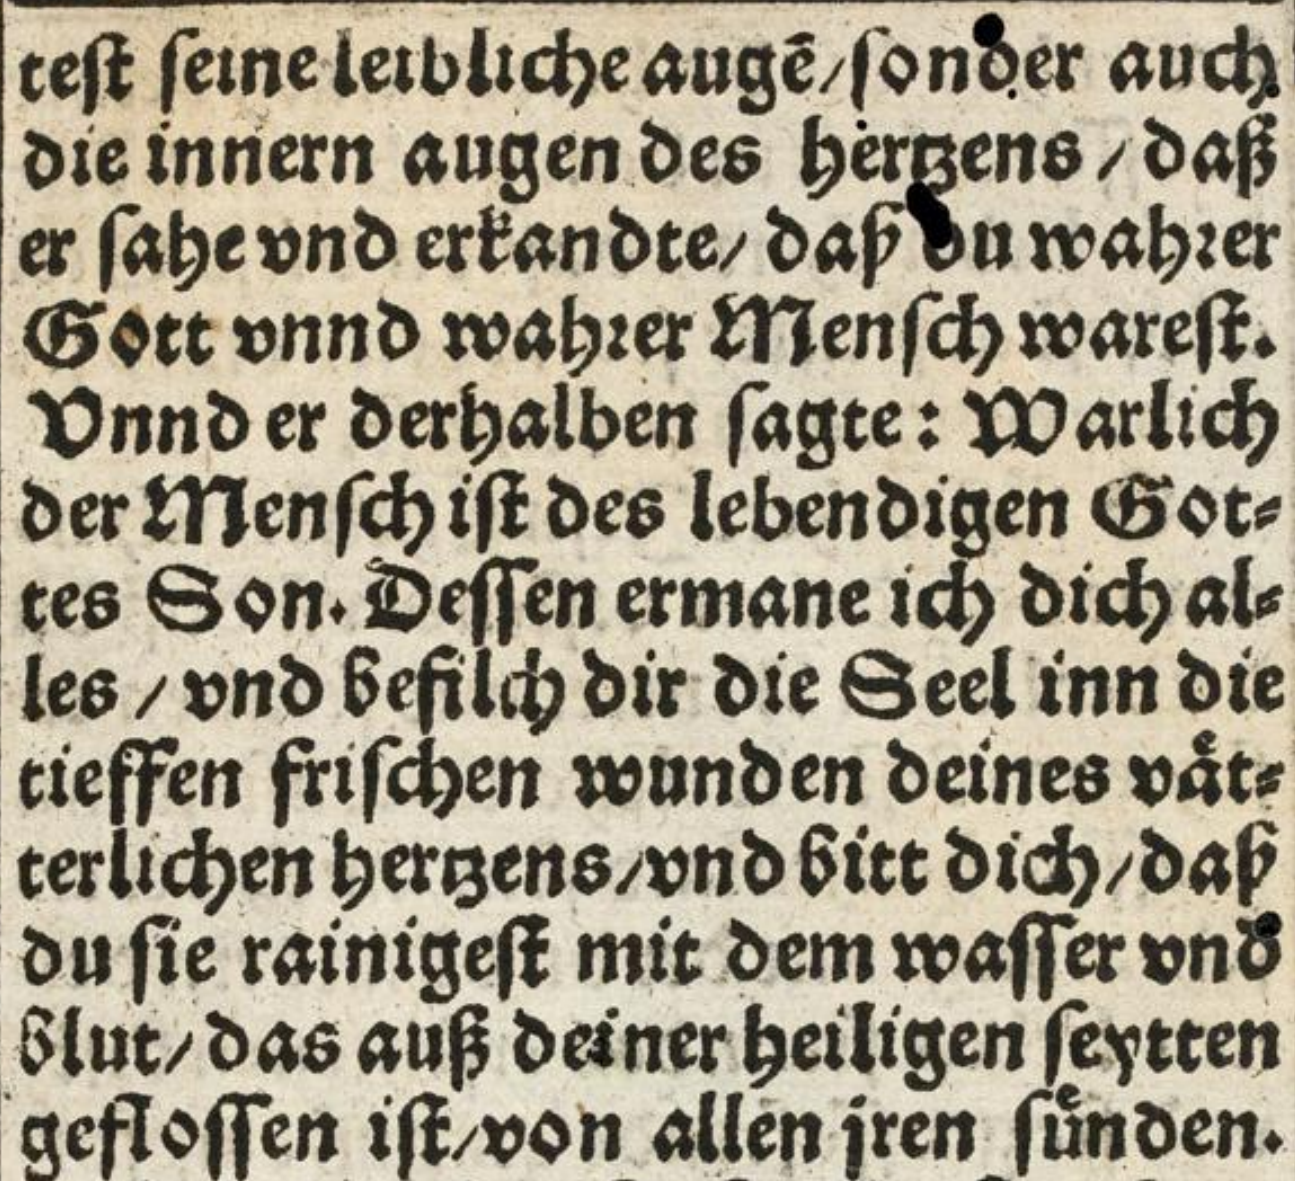 teſt ſeine leibliche augē/ſonder auch
die innern augen des hertzens / daß
er ſahe vnd erkandte/ daß du wahrer
Gott vnnd wahrer Menſch wareſt.
Vnnd er derhalben ſagte: Warlich
der Menſch iſt des lebendigen Got⸗
tes Son. Deſſen ermane ich dich al⸗
les / vnd befilch dir die Seel inn die
tieffen friſchen wunden deines vaͤt⸗
terlichen hertzens/vnd bitt dich/daß
du ſie rainigeſt mit dem waſſer vnd
blut/das auß deiner heiligen ſeytten
gefloſſen iſt/von allen jren ſuͤnden.